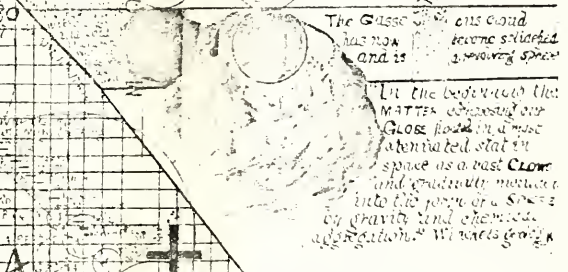 The Gasse ous cloud
has now become solidified
and is a growing Sphere
In the beginning the
MATTER composing our
GLOBE floated in a most
atenuated stat in
space as a vast CLOWD
and gradually moulded
into the form of a SPHERE
by gravity and chemical
aggregation."
A